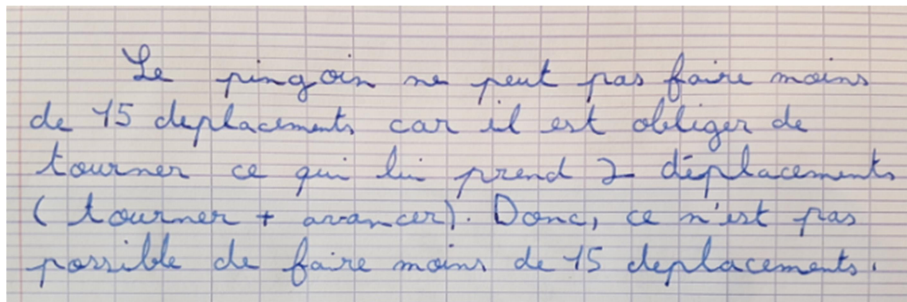 Le pingoin ne peut pas faire moins
de 15 deplacements car il est obliger de
tourner ce qui lui prend 2 déplacements
( tourner + avancer). Donc, ce n'est pas
possible de faire moins de 15 deplacements.